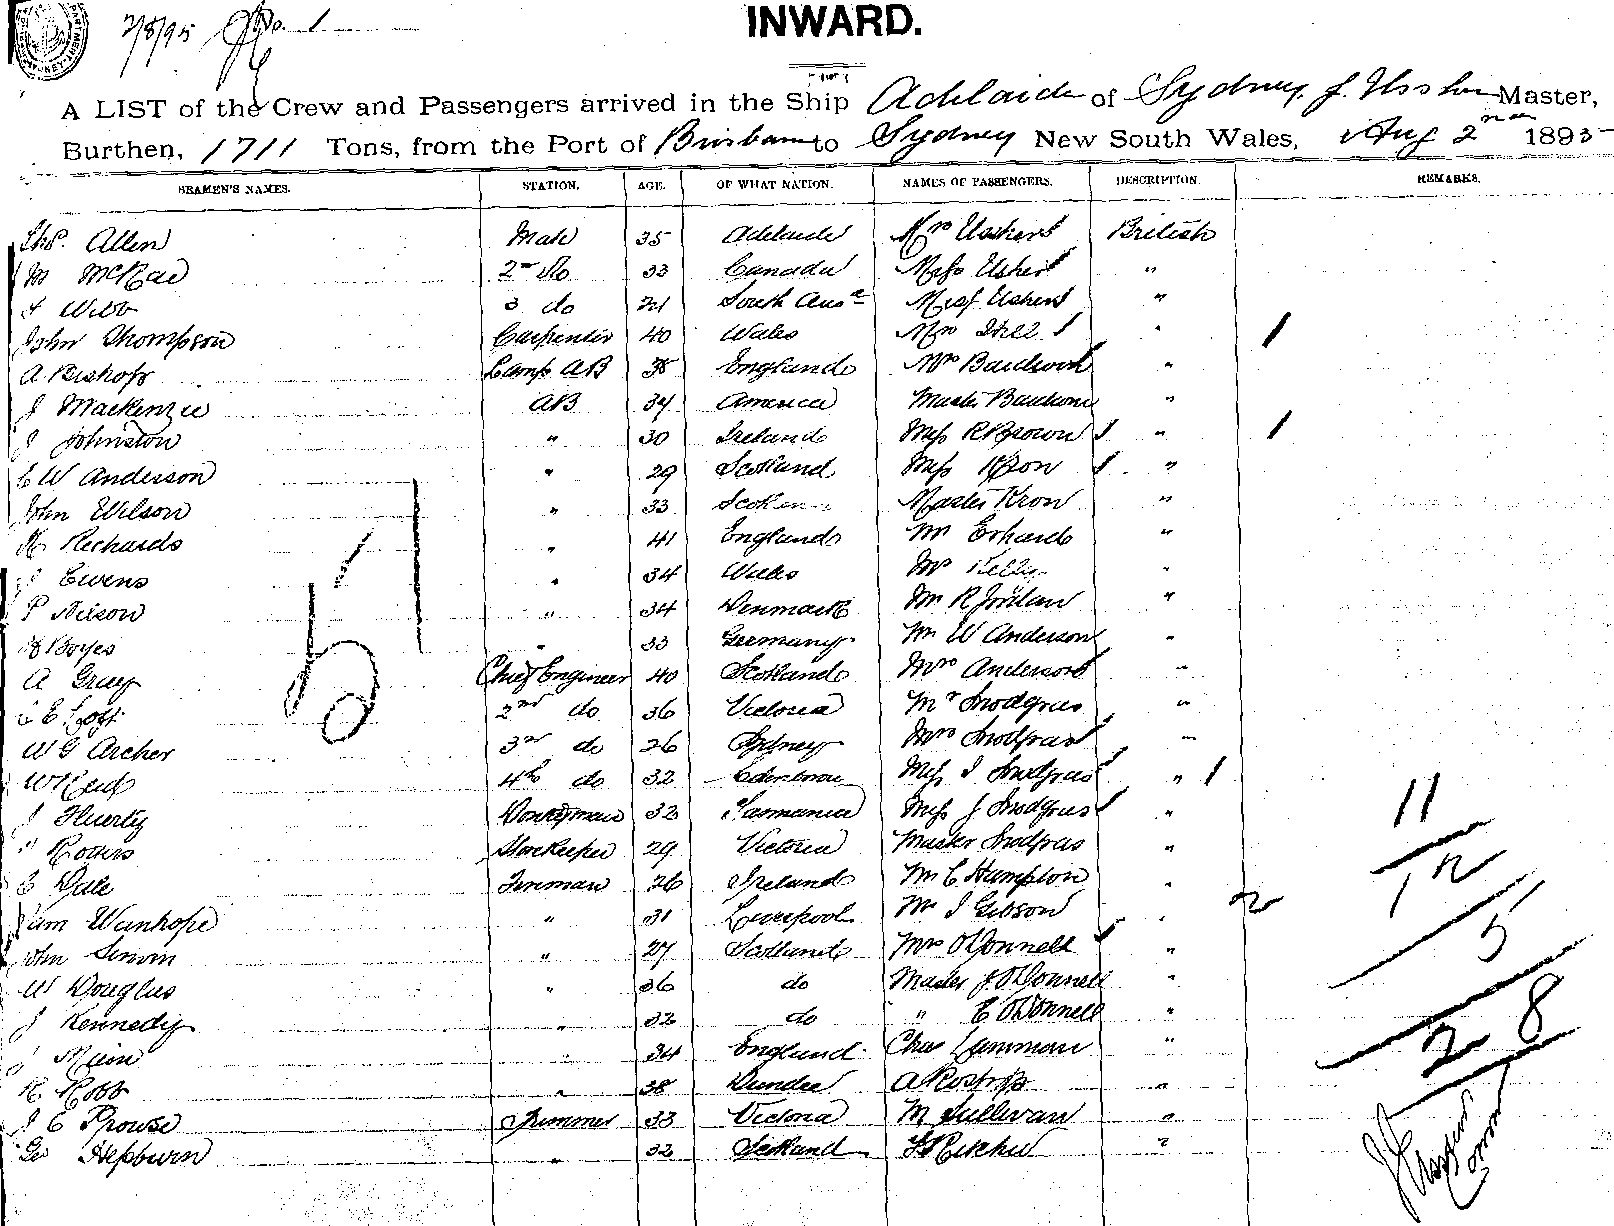 2/8/95 No. 1
INWARD.
A LIST of the Crew and Passengers arrived in the Ship Adelaide of Sydney, J. Ussher Master,
Burthen, 1711 Tons, from the Port of Brisbane to Sydney New South Wales, Aug 2nd 1895
SEAMEN'S NAMES. STATION. AGE. OF WHAT NATION. NAMES OF PASSENGERS. DESCRIPTION. REMARKS.
Thos. Allen Mate 35 Adelaide Mrs Usshers British
M McRae 2nd do 33 Canada Miss Usher "
Webb 3 do 21 South Aus Miss Ushers "
John Thompson Carpenter 40 Wales Mrs Hill 1 " 1
A Bishop Lamps AB 38 England Mrs "
J Mackenzie AB 34 America Master "
J Johnston " 30 Ireland Miss R Brown 1 " 1
C W Anderson " 29 Scotland Miss Kron 1 "
John Wilson " 33 Master Kron "
Richards " 41 England Mr Erhard "
J Evens " 34 Wales Mr Kelly "
P Nilson " 34 Denmark Mr R Jordan "
Boyes " 33 Germany Mr W Anderson "
A Gray Chief Engineer 40 Scotland Mrs Anderson "
2nd do 36 Victoria Mr Snodgras "
W G Archer 3rd do 26 Sydney Mrs Snodgras "
W Reid 4th do 32 Miss I Snodgras " 1
J Donkeyman 32 Tasmania Miss J Snodgras "
" Storekeeper 29 Victoria Master Snodgras "
C Dale Fireman 26 Ireland Mr C Hampton "
Wanhope " 31 Liverpool Mr J Gibson " 2
John " 27 Scotland Mrs O'Connell "
W Douglas " 36 do Master J O'Connell "
J Kennedy " 32 do " C O'Donnell "
J " 34 England Chas "
R Robb " 38 Dundee A "
J C Prowse Trimmer 33 Victoria M Sullivan "
Geo Hepburn " 32 Scotland "
67
11
12
5
28